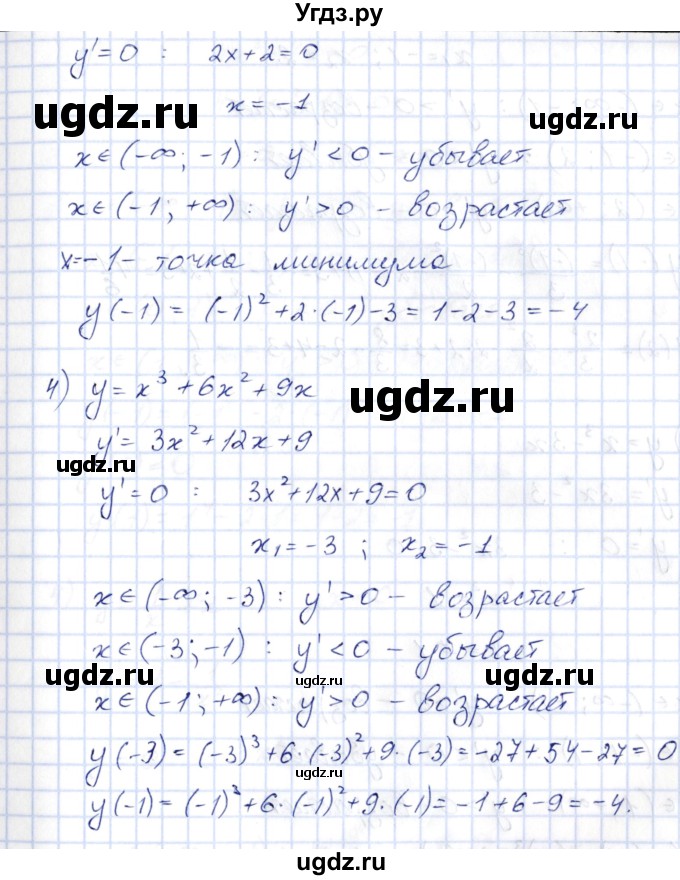 Угдз.ру
y'=0 : 2x+2=0
x=-1
ugdz.ru
ugdz.ru
x∈(-∞; -1): y'<0 - убывает
x∈(-1; +∞): y'>0 - возрастает
x=-1- точка минимума
y(-1) = (-1)²+2·(-1)-3=1-2-3=-4
4) y=x³+6x²+9x
ugdz.ru
y'=3x²+12x+9
ugdz.ru
y'=0 : 3x²+12x+9=0
x₁=-3 ; x₂=-1
x∈(-∞; -3): y'>0 - возрастает
x∈(-3; -1): y'<0 - убывает
ugdz.ru
ugdz.ru
ugdz.ru
x∈(-1; +∞): y'>0 - возрастает
y(-3)=(-3)³+6·(-3)²+9·(-3)=-27+54-27=0
ugdz.ru
y(-1)=(-1)³+6·(-1)²+9·(-1)=-1+6-9=-4.
ugdz.ru